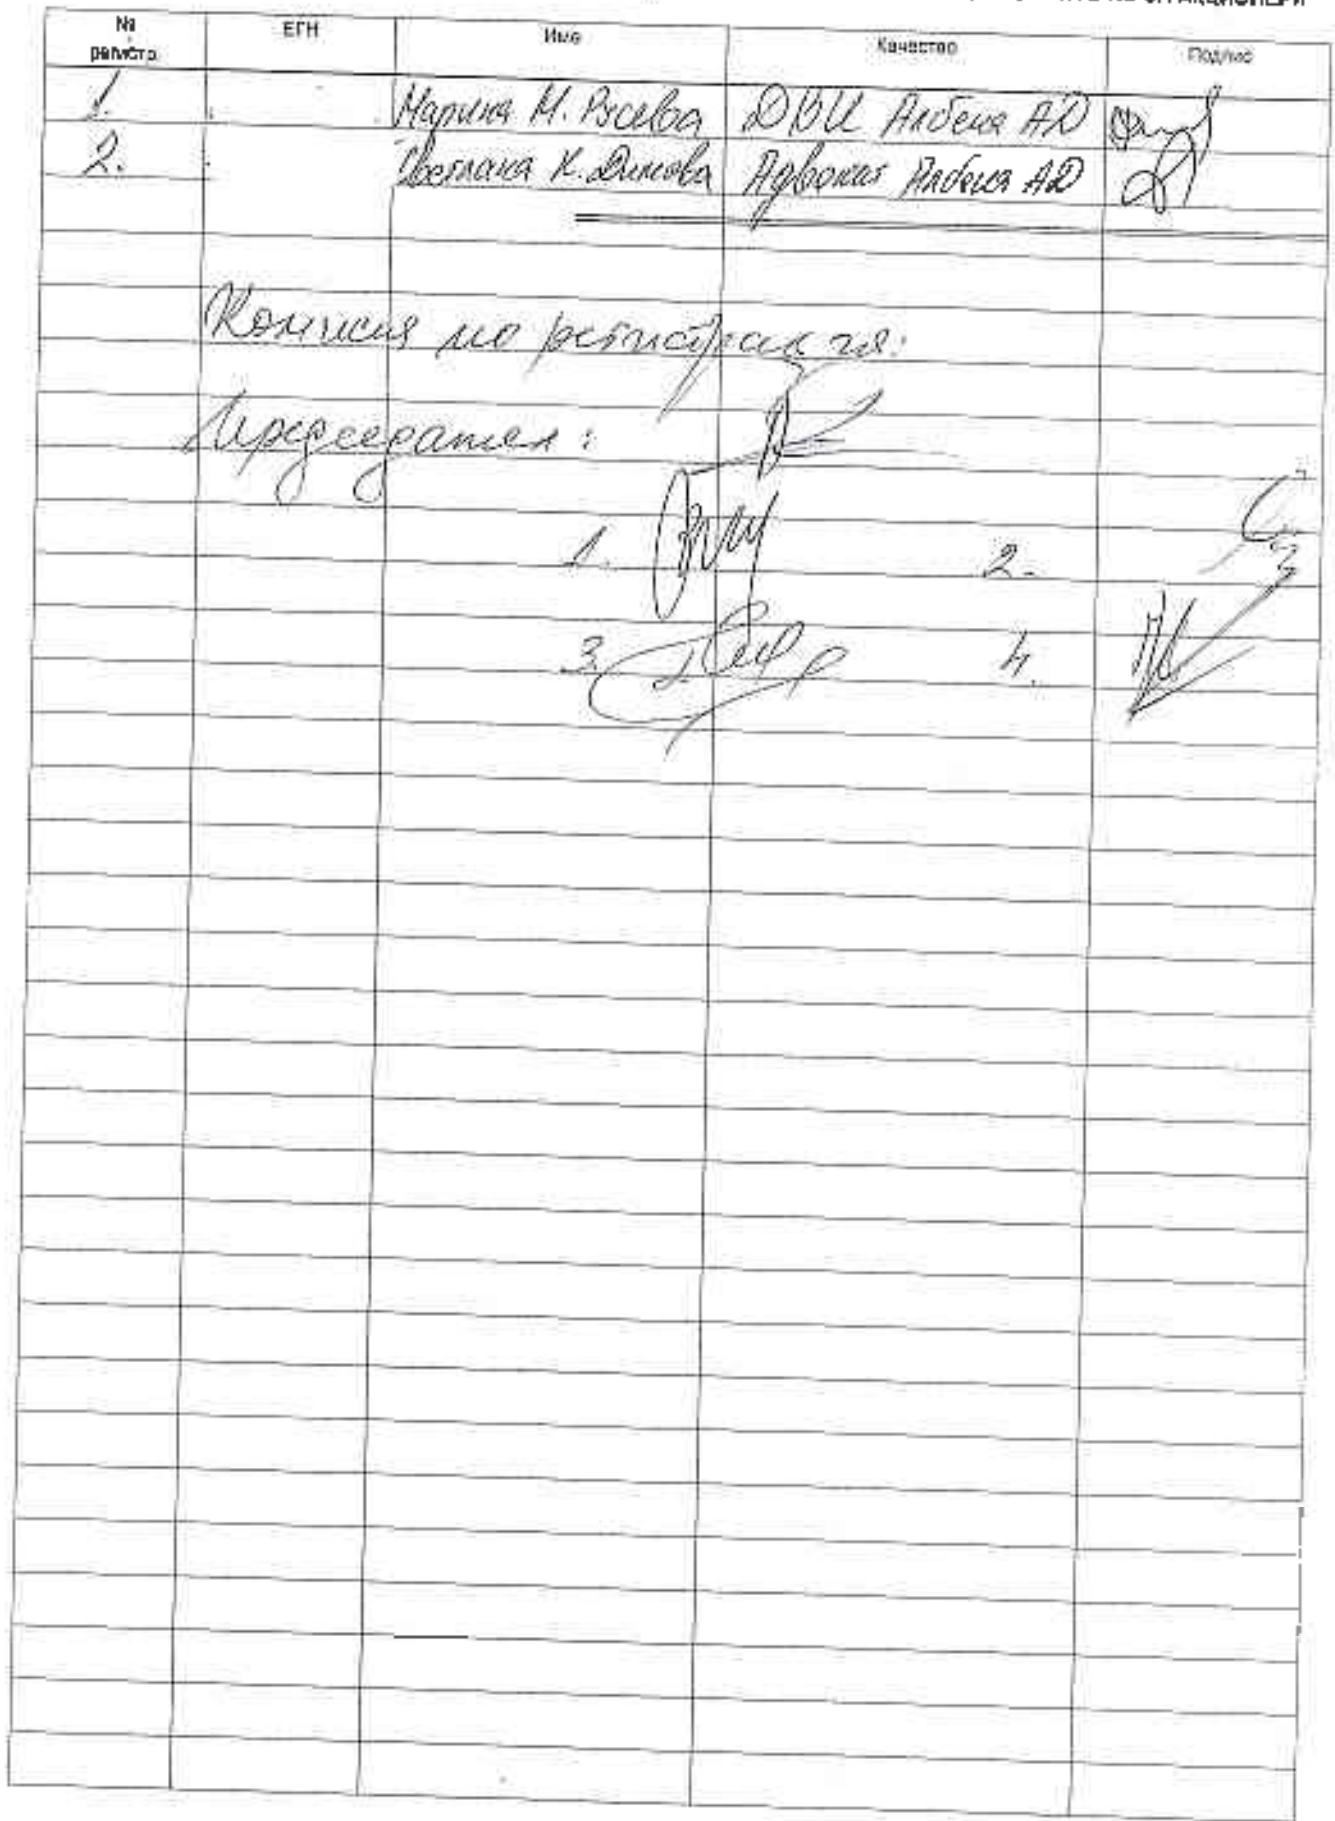 АКЦИОНЕРИ
№ регистр. ЕГН Име Качество Подпис
1. Марина М. Русева ДВИ Албена АД
2. Светлана К. Димова Адвокат Албена АД
Комисия по регистрация:
Председател:
1. 2.
3. 4.